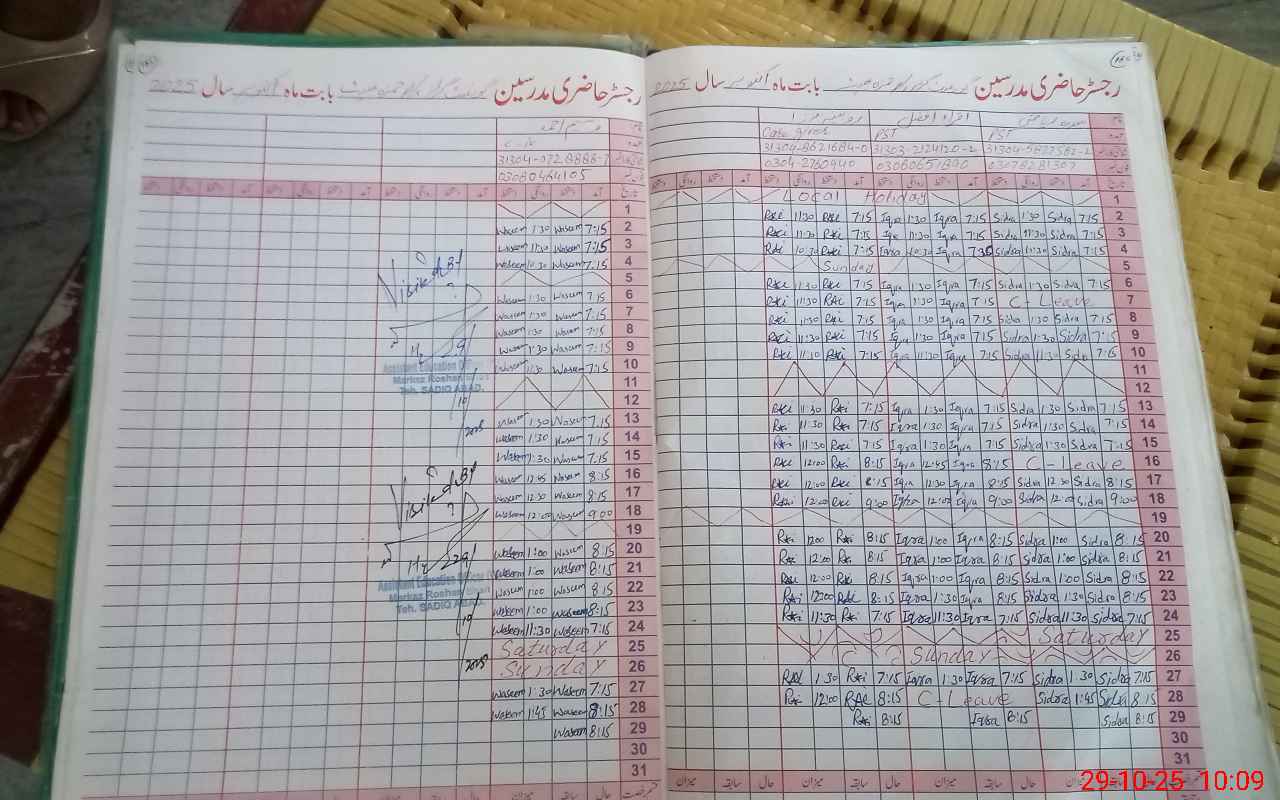 رجسٹر حاضری مدرسین بابت ماہ اکتوبر سال 2025
وسیم احمد
31304-0728888-7
03080464105
تاریخ آمد دستخط روانگی دستخط آمد دستخط روانگی دستخط آمد دستخط روانگی دستخط آمد دستخط روانگی دستخط
1
Waseem 1:30 Waseem 7:15 2
Waseem 11:30 Waseem 7:15 3
Waseem 10:30 Waseem 7:15 4
5
Waseem 1:30 Waseem 7:15 6
Waseem 1:30 Waseem 7:15 7
Waseem 1:30 Waseem 7:15 8
Waseem 1:30 Waseem 7:15 9
Waseem 11:30 Waseem 7:15 10
11
12
Waseem 1:30 Waseem 7:15 13
Waseem 1:30 Waseem 7:15 14
Waseem 1:30 Waseem 7:15 15
Waseem 12:45 Waseem 8:15 16
Waseem 12:30 Waseem 8:15 17
Waseem 12:00 Waseem 9:00 18
19
Waseem 1:00 Waseem 8:15 20
Waseem 1:00 Waseem 8:15 21
Waseem 1:00 Waseem 8:15 22
Waseem 1:00 Waseem 8:15 23
Waseem 11:30 Waseem 7:15 24
Saturday 25
Sunday 26
Waseem 1:30 Waseem 7:15 27
Waseem 1:45 Waseem 8:15 28
Waseem 8:15 29
30
31
Visited
29/10/2025
Assistant Education Officer
Markaz Roshan
Teh. SADIQ ABAD.
Visited
29/10/2025
Assistant Education Officer
Markaz Roshan
Teh. SADIQ ABAD.
حال سابقہ میزان حال سابقہ میزان حال سابقہ میزان
رجسٹر حاضری مدرسین بابت ماہ اکتوبر سال 2025
نام
PST PST Care giver
31304-5827582-2 31303-2124120-2 31304-8621684-0
03078281307 03060651890 0304-2760940
تاریخ آمد دستخط روانگی دستخط آمد دستخط روانگی دستخط آمد دستخط روانگی دستخط آمد دستخط روانگی دستخط
Local Holiday 1
11:30 7:15 Iqra 1:30 Iqra 7:15 Sidra 1:30 Sidra 7:15 2
11:30 7:15 Iqra 11:30 Iqra 7:15 Sidra 11:30 Sidra 7:15 3
10:30 7:15 Iqra 10:30 Iqra 7:15 Sidra 10:30 Sidra 7:15 4
Sunday 5
11:30 7:15 Iqra 1:30 Iqra 7:15 Sidra 1:30 Sidra 7:15 6
11:30 7:15 Iqra 1:30 Iqra 7:15 C-Leave 7
11:30 7:15 Iqra 1:30 Iqra 7:15 Sidra 1:30 Sidra 7:15 8
11:30 7:15 Iqra 1:30 Iqra 7:15 Sidra 1:30 Sidra 7:15 9
11:10 7:15 Iqra 11:30 Iqra 7:15 Sidra 11:30 Sidra 7:15 10
11
12
11:30 7:15 Iqra 1:30 Iqra 7:15 Sidra 1:30 Sidra 7:15 13
11:30 7:15 Iqra 1:30 Iqra 7:15 Sidra 1:30 Sidra 7:15 14
11:30 7:15 Iqra 1:30 Iqra 7:15 Sidra 1:30 Sidra 7:15 15
12:00 8:15 Iqra 12:45 Iqra 8:15 C-Leave 16
12:00 8:15 Iqra 12:30 Iqra 8:15 Sidra 12:30 Sidra 8:15 17
12:00 9:00 Iqra 12:00 Iqra 9:00 Sidra 12:00 Sidra 9:00 18
19
1200 8:15 Iqra 1:00 Iqra 8:15 Sidra 1:00 Sidra 8:15 20
12:00 8:15 Iqra 1:00 Iqra 8:15 Sidra 1:00 Sidra 8:15 21
12:00 8:15 Iqra 1:00 Iqra 8:15 Sidra 1:00 Sidra 8:15 22
12:00 8:15 Iqra 1:30 Iqra 8:15 Sidra 1:30 Sidra 8:15 23
11:30 7:15 Iqra 11:30 Iqra 7:15 Sidra 11:30 Sidra 7:15 24
Saturday 25
Sunday 26
1:30 7:15 Iqra 1:30 Iqra 7:15 Sidra 1:30 Sidra 7:15 27
12:00 8:15 C-Leave Sidra 1:45 Sidra 8:15 28
8:15 Iqra 8:15 Sidra 8:15 29
30
31
حال سابقہ میزان حال سابقہ میزان
29-10-25 10:09